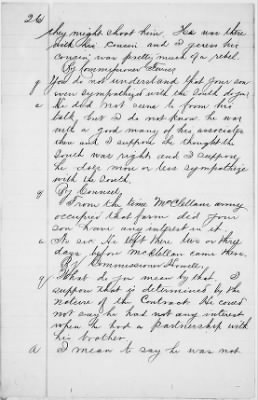 26
they might shoot him. He was there
with his cousin and I guess his
cousin was pretty much of a rebel.
By Commissioner
q You do not understand that your son
even sympathized with the South do you?
a He did not seem to from his
talk but I do not know he was
with a good many of his associates
then and I suppose he thought the
South was right, and I suppose
he does more or less sympathize
with the South.
By Counsel,
q From the time McClellans army
occupied that farm did your
son have any interest in it.
a No sir He left there two or three
days before McClellan came there.
By Commissioner Howell,
q What do you mean by that. I
suppose that is determined by the
nature of the Contract. He could
not say he had not any interest
when he had a partnership with
his brother
A I mean to say he was not